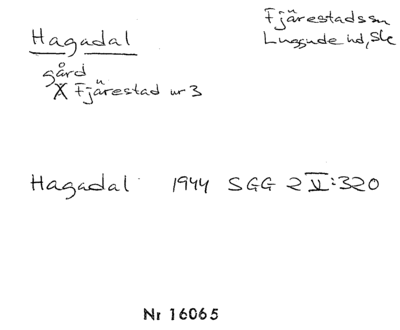 Hagadal
Fjärestads sn
Luggude hd, Sk
gård
X Fjärestad nr 3
Hagadal 1944 SGG 2 V:320
Nr 16065